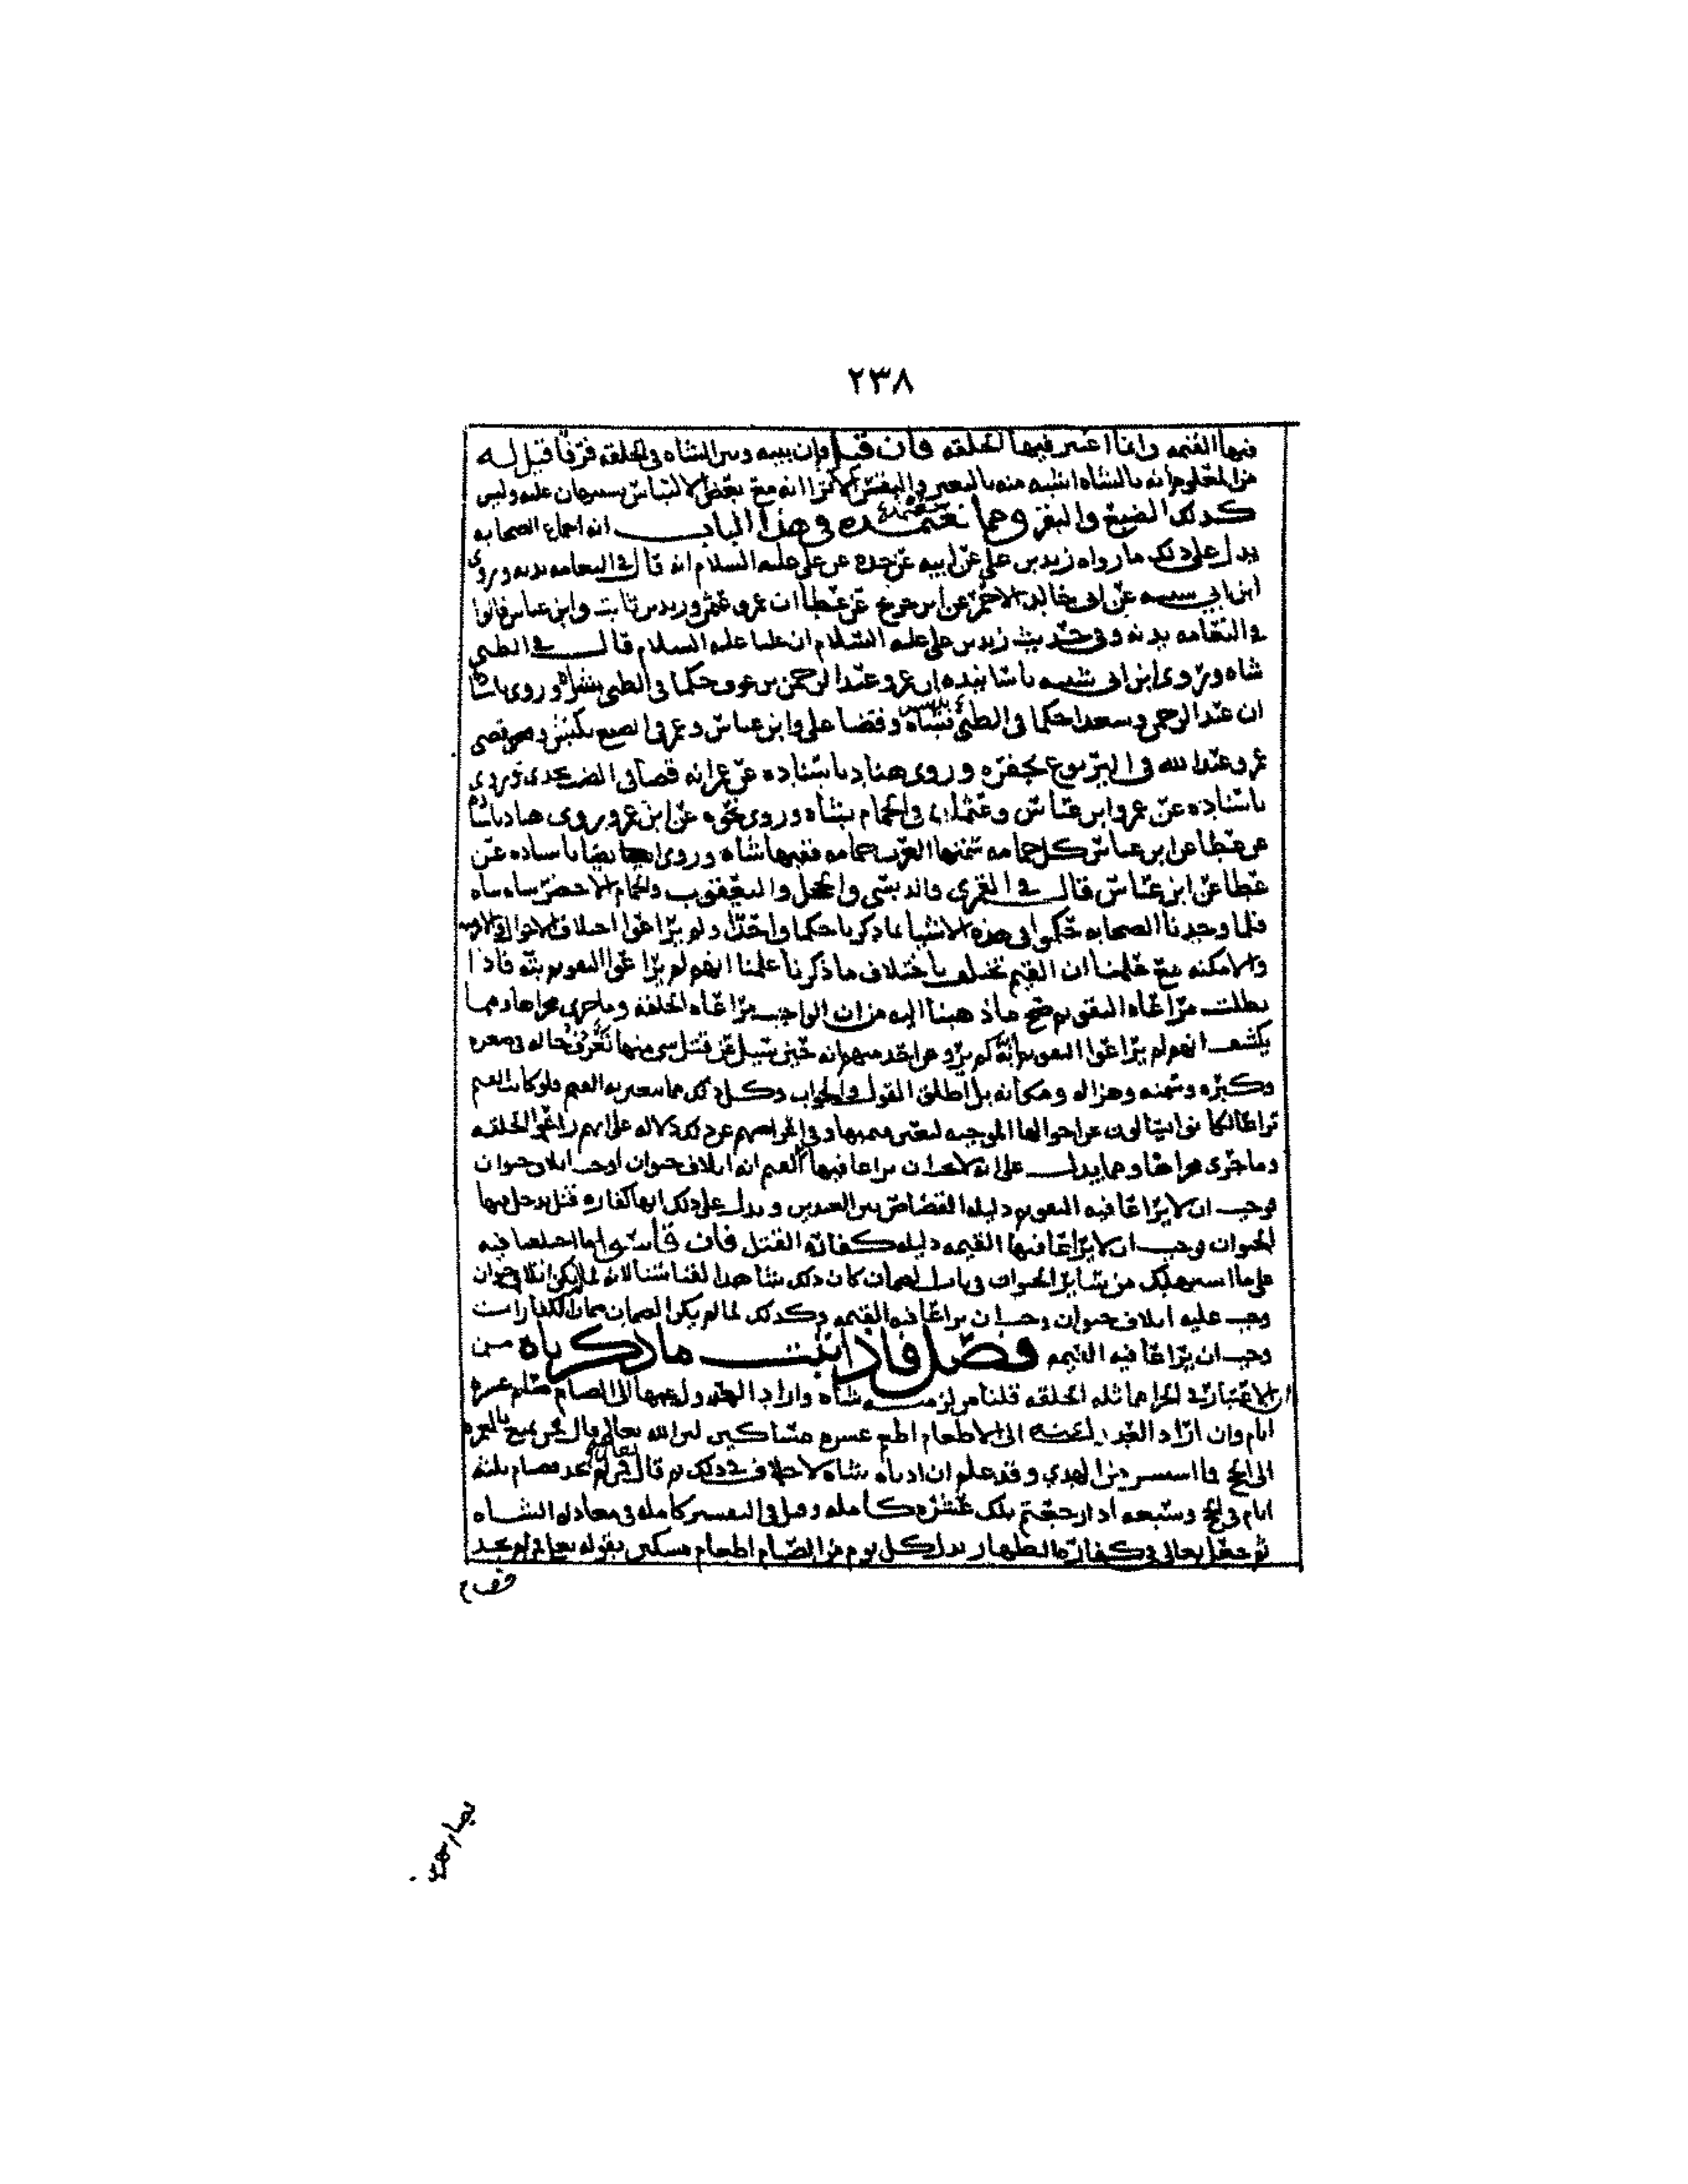 ٢٣٨
فيها القيمه وانما اعتبر فيها الخلقه فان قيل فان بينه وبين الشاه في الخلقه فرقا قيل له
من المعلوم انه بالشاه اشبه منه بالبعير والبقر الا ترا انه مع بعض الالتباس يستبرهان عليه وليس
كذلك الضبع والبقر ومما نعتمده في هذا الباب انه اجماع الصحابه
يدل على ذلك ما رواه زيد بن علي عن ابيه عن جده عن علي عليه السلام انه قال في النعامه بدنه وروى
ابن ابي شيبه عن ابي خالد الاحمر عن ابن جريج عن عطا ان عمر وعثمن وزيد بن ثابت وابن عباس قالوا
في النعامه بدنه وفي حديث زيد بن علي عليه السلام ان عليا عليه السلام قال في الظبي
شاه وروى ابن ابي شيبه باسانيده ان عمر وعبد الرحمن بن عوف حكما في الظبي بشاه وروى باسناده
ان عبد الرحمن وسعدا حكما في الظبي بتيس وقضا علي وابن عباس وعمر في الضبع بكبش وقضى
عمر وعبد الله في اليربوع بجفره وروى هناد باسناده عن عمر انه قضا في الضب بجدي وروى
باسناده عن عمر وابن عباس وعثمان في الحمام بشاه وروى نحوه عن ابن عمر وروى هناد باسناده
عن عطا عن ابن عباس كل حمامه تسمها العرب حمامه ففيها شاه وروى ايضا باسناده عن
عطا عن ابن عباس قال في القمري والدبسي والحجل واليعقوب والحمام الاخضر شاه شاه
فلما وجدنا الصحابه حكموا في هذه الاشيا بما ذكرنا حكما واحدا ولم يراعوا اختلاف الاحوال في الازمنه
والامكنه مع علمنا ان القيم تختلف باختلاف ما ذكرنا علمنا انهم لم يراعوا التقويم بته فاذا
بطلت مراعاه التقويم صح ما ذهبنا اليه من ان الواجب مراعاه الخلقه وما جرى مجراها ومما
يكشف انهم لم يراعوا التقويم انه لم يرو عن احد منهم انه حين سيل عن قتل شي منها تعرف حاله في صغره
وكبره وسمنه وهزاله ومكانه بل اطلق القول في الجواب وكل ذلك مما يتغير به القيم فلو كانت القيم
تراعا لكانوا يسالون عن احوالها الموجبه لتغير قيمها وفي اعراضهم عن ذلك دلاله على انهم راعوا الخلقه
وما جرى مجراها ومما يدل على انه لا يجب ان يراعا فيها القيم انه اتلاف حيوان اوجب اتلاف حيوان
فوجب ان لا يراعا فيه التقويم دليله القصاص بين العبدين ويدل على ذلك انها كفاره قتل يدخل فيها
الحيوان فوجب ان لا يراعا فيها القيمه دليله كفاره القتل فان قاسوا ما اختلفنا فيه
على ما استهلك من ساير الحيوان في باب الضمان كان ذلك شاهدا لقياسنا لانه لما لم يكن اتلاف حيوان
وجب عليه اتلاف حيوان وجب ان يراعا فيه القيمه وكذلك لما لم يكن الضمان ضمان الكفارات
وجب ان يراعا فيه القيمه فصل فاذا ثبت ما ذكرناه من
الاعتبار في الجزا مماثله الخلقه قلنا من لزمته شاه واراد العدول عنها الى الصيام صام عشره
ايام وان اراد العدول عنه الى الاطعام اطعم عشره مساكين لان الله تعالى قال فمن تمتع بالعمره
الى الحج فما استيسر من الهدي وقد علم ان ادناه شاه لا خلاف في ذلك ثم قال تعالى فمن لم يجد فصيام ثلثه
ايام في الحج وسبعه اذا رجعتم تلك عشره كامله وقيل في التفسير كامله في معادله الشاه
ثم جعل تعالى في كفاره الظهار بدل كل يوم من الصيام اطعام مسكين بقوله تعالى فمن لم يجد
فصيام